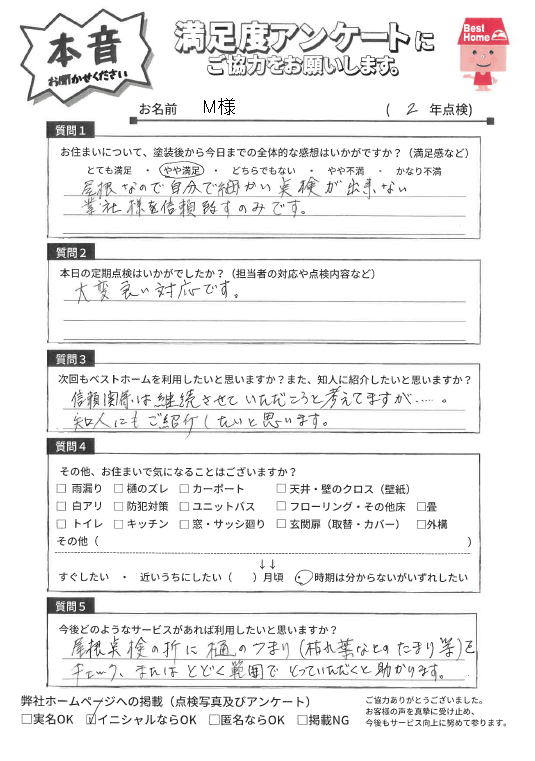 本音
お聞かせください
満足度アンケートに
ご協力をお願いします。
Best
Home
お名前 M様 ( 2 年点検)
質問1
お住まいについて、塗装後から今日までの全体的な感想はいかがですか？（満足感など）
とても満足 ・ やや満足 ・ どちらでもない ・ やや不満 ・ かなり不満
屋根なので自分で細かい点検が出来ない
業社様を信頼致すのみです。
質問2
本日の定期点検はいかがでしたか？（担当者の対応や点検内容など）
大変良い対応です。
質問3
次回もベストホームを利用したいと思いますか？また、知人に紹介したいと思いますか？
信頼関係は継続させていただこうと考えてますが……。
知人にもご紹介したいと思います。
質問4
その他、お住まいで気になることはございますか？
□ 雨漏り □ 樋のズレ □ カーポート □ 天井・壁のクロス（壁紙）
□ 白アリ □ 防犯対策 □ ユニットバス □ フローリング・その他床 □畳
□ トイレ □ キッチン □ 窓・サッシ廻り □ 玄関扉（取替・カバー） □外構
その他（ ）
↓↓
すぐしたい ・ 近いうちにしたい（ ）月頃 ・ 時期は分からないがいずれしたい
質問5
今後どのようなサービスがあれば利用したいと思いますか？
屋根点検の折に樋のつまり(枯れ葉などのたまり等)を
チェック、またはとどく範囲でとっていただくと助かります。
弊社ホームページへの掲載（点検写真及びアンケート）
□実名OK ☑イニシャルならOK □匿名ならOK □掲載NG
ご協力ありがとうございました。
お客様の声を真摯に受け止め、
今後もサービス向上に努めて参ります。